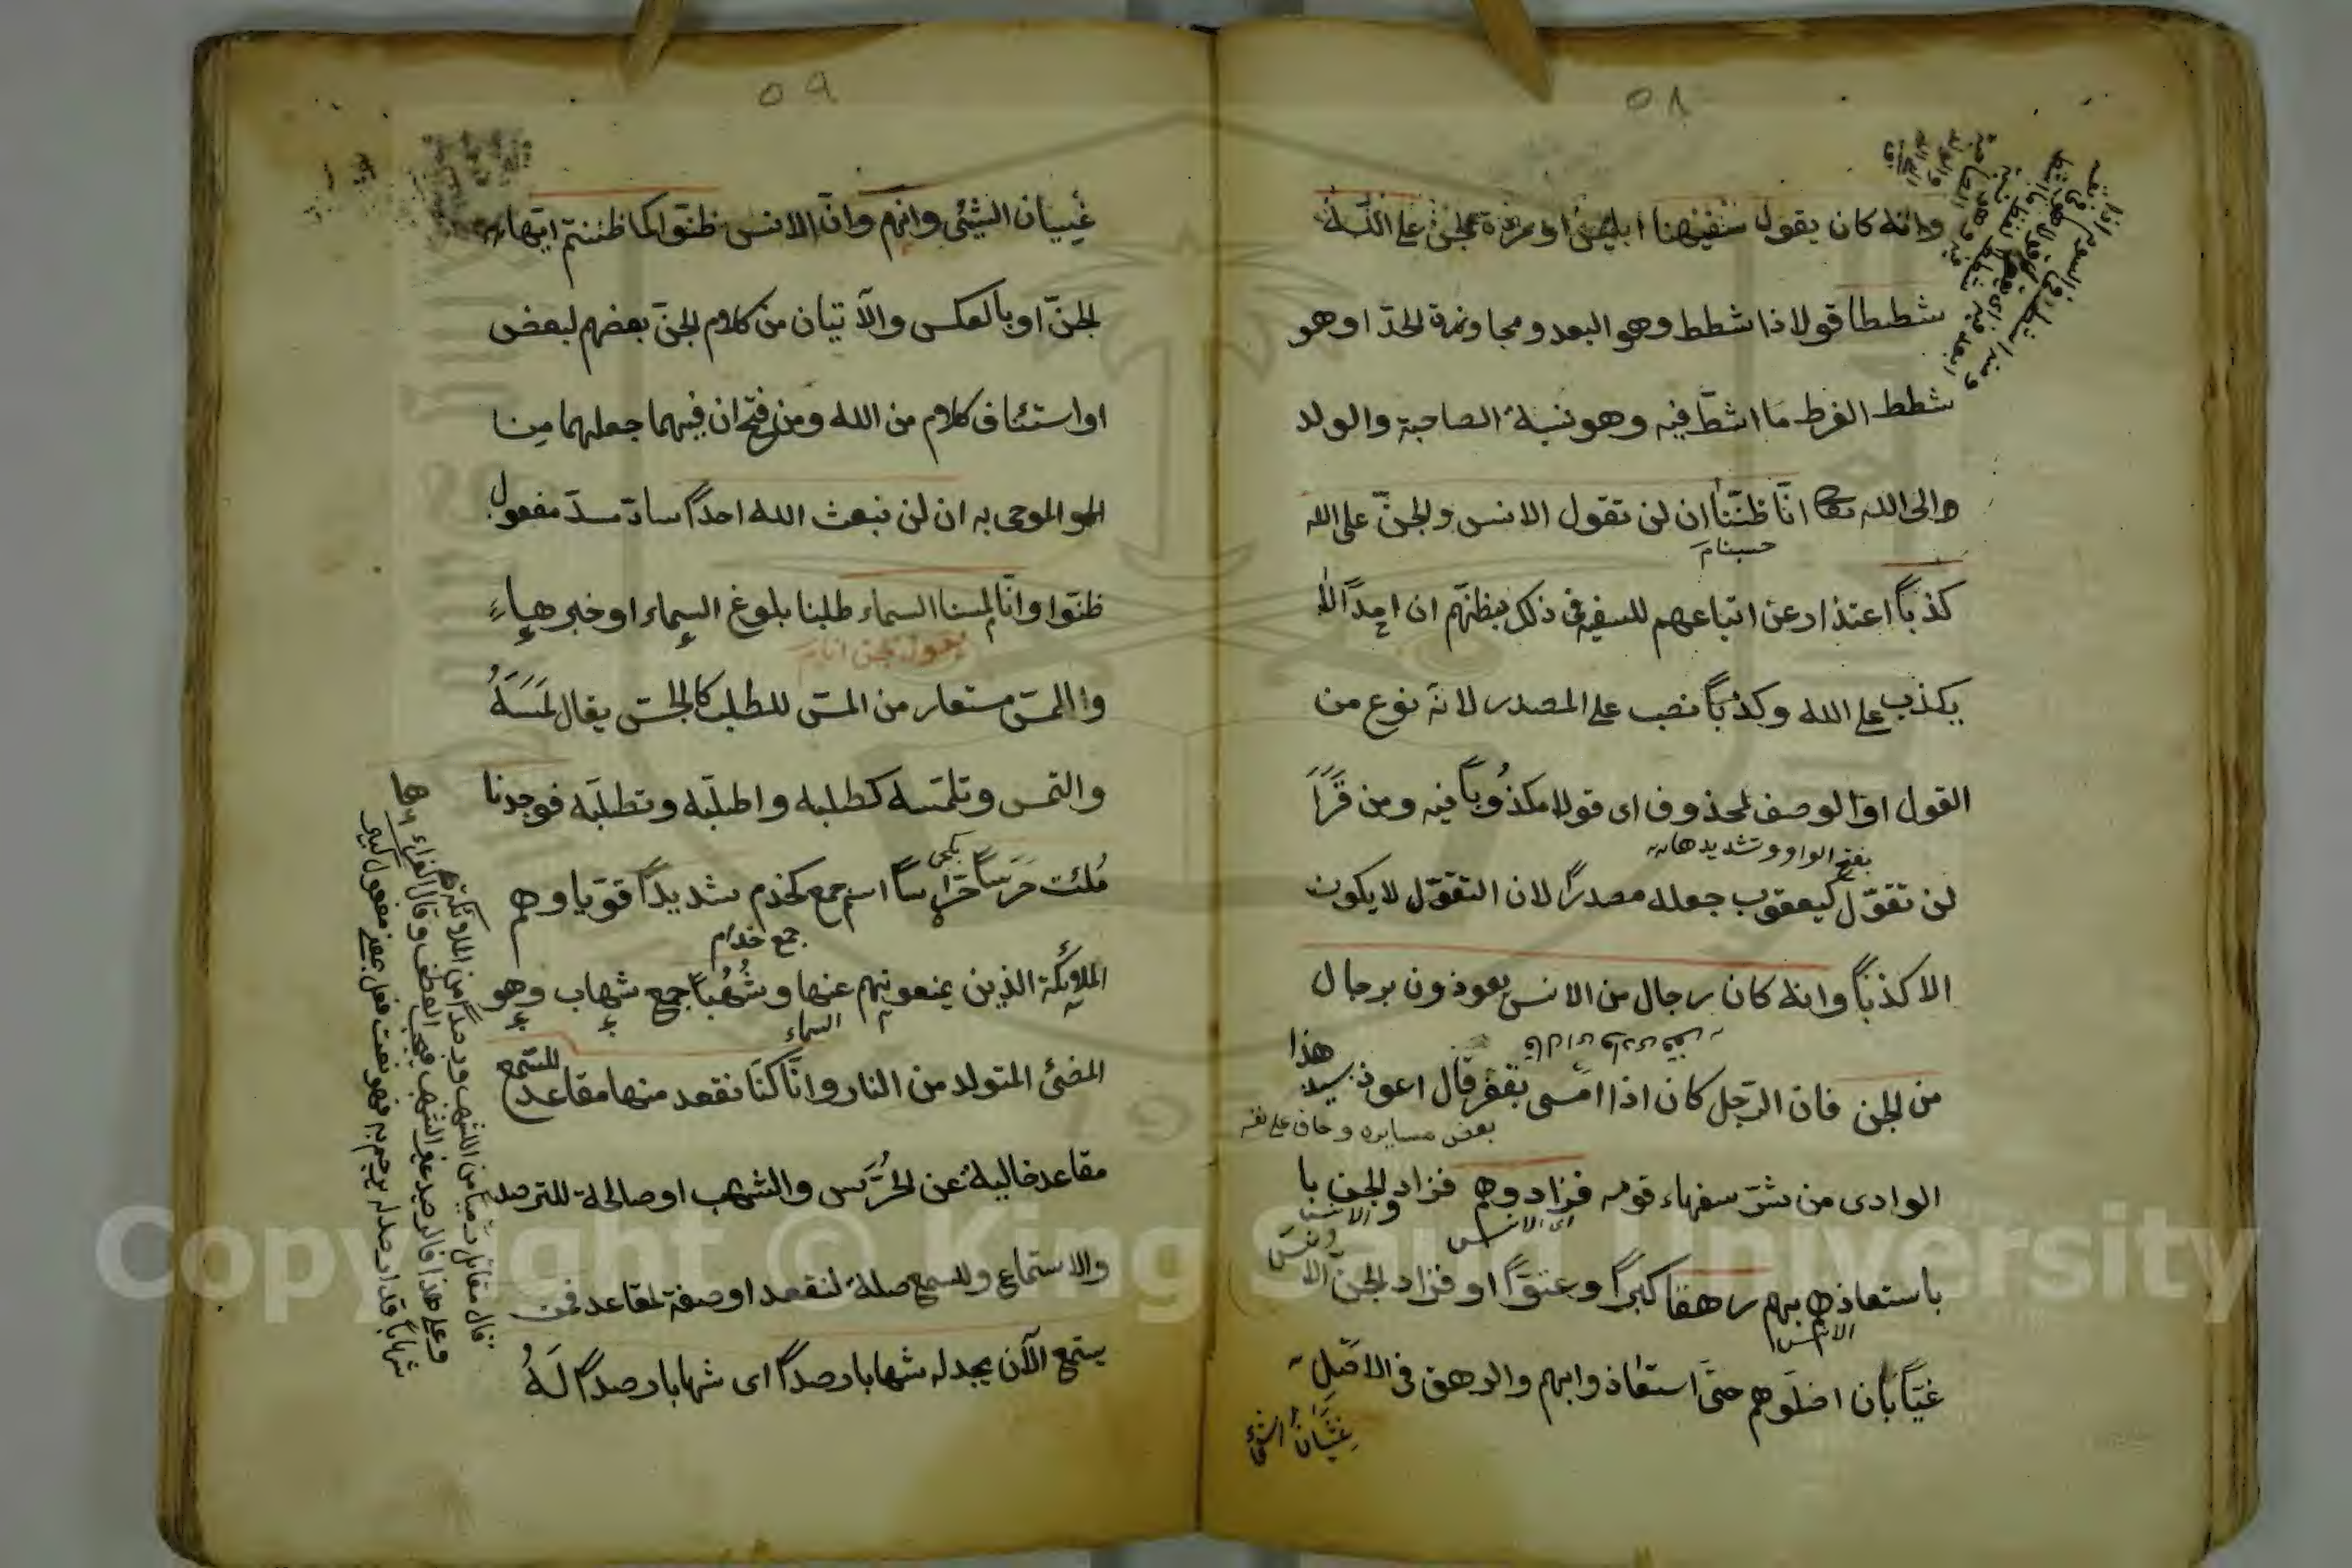 ٥٨
وانه كان يقول سفيهنا ابليس او مردة الجن على الله
شططا قولا ذا شطط وهو البعد ومجاوزة الحدّ او هو
شطط الفرط ما اشطّ فيه وهو نسبة الصاحبة والولد
والى الله انّا ظننّا ان لن تقول الانس والجنّ على الله
حسبنا م
كذباً اعتذار عن اتباعهم للسفيه فى ذلك بظنهم ان احداً لا
يكذب على الله وكذباً نصب على المصدر لانه نوع من
القول او الوصف لمحذوف اى قولا مكذوباً فيه ومن قرأ
بفتح الواو وتشديدها
لن تقوّل كيعقوب جعله مصدراً لان التقوّل لا يكون
الا كذباً وانه كان رجال من الانس يعوذون برجال
من الجن فان الرّجل كان اذا امسى بقفر قال اعوذ بسيد هذا
بعض مسايره وخاف على نفسه
الوادى من شرّ سفهاء قومه فزادوهم فزاد والجن با
اى الانس
باستعاذهم بهم رهقا كبراً وعتوّاً او فزاد الجنّ الانس
الانس
غيّاً بان اضلّوهم حتى استعاذوا بهم والرهق فى الاصل
غِشْيَانُ الشئ
٥٩
غِشيان الشيئى وانهم وانّ الانس ظنّوا كما ظننتم ايّها
الجنّ او بالعكس والآيتان من كلام الجنّ بعضهم لبعض
او استئناف كلام من الله ومن فتح ان فيهما جعلهما من
الموحى به ان لن يبعث الله احداً سادّ مسدّ مفعول
ظنّوا وانّا لمسنا السماء طلبنا بلوغ السماء او خبرها
يقول الجن انا م
واللمس مستعار من المسّ للطلب كالجسّ يقال لَمَسَهُ
والتمس وتلمّسه كطلبه واطلبه وتطلبه فوجدنا
مُلئت حَرَساً حرّاساً اسم جمع كخدم شديداً قويّا وهم
جمع خدام
الملائكة الذين يمنعونهم عنها وشُهُباً جمع شهاب وهو
السماء
المضئ المتولد من النار وانّا كنّا نقعد منها مقاعد للسّمع
مقاعد خالية عن الحرّس والشهب او صالحة للترصد
والاستماع وللسمع صلة لنقعد او صفة لمقاعد فمن
يستمع الآن يجد له شهابا رصداً اى شهابا رصداً لَهُ
قال مقاتل رميا من الشهب ورصداً من الملائكة
وعلى هذا فالرصد غير الشهب فيجب العطف وقال الفراء
شهاباً قد ارصد له يرجم به فهو نعت فعل بمعنى مفعول